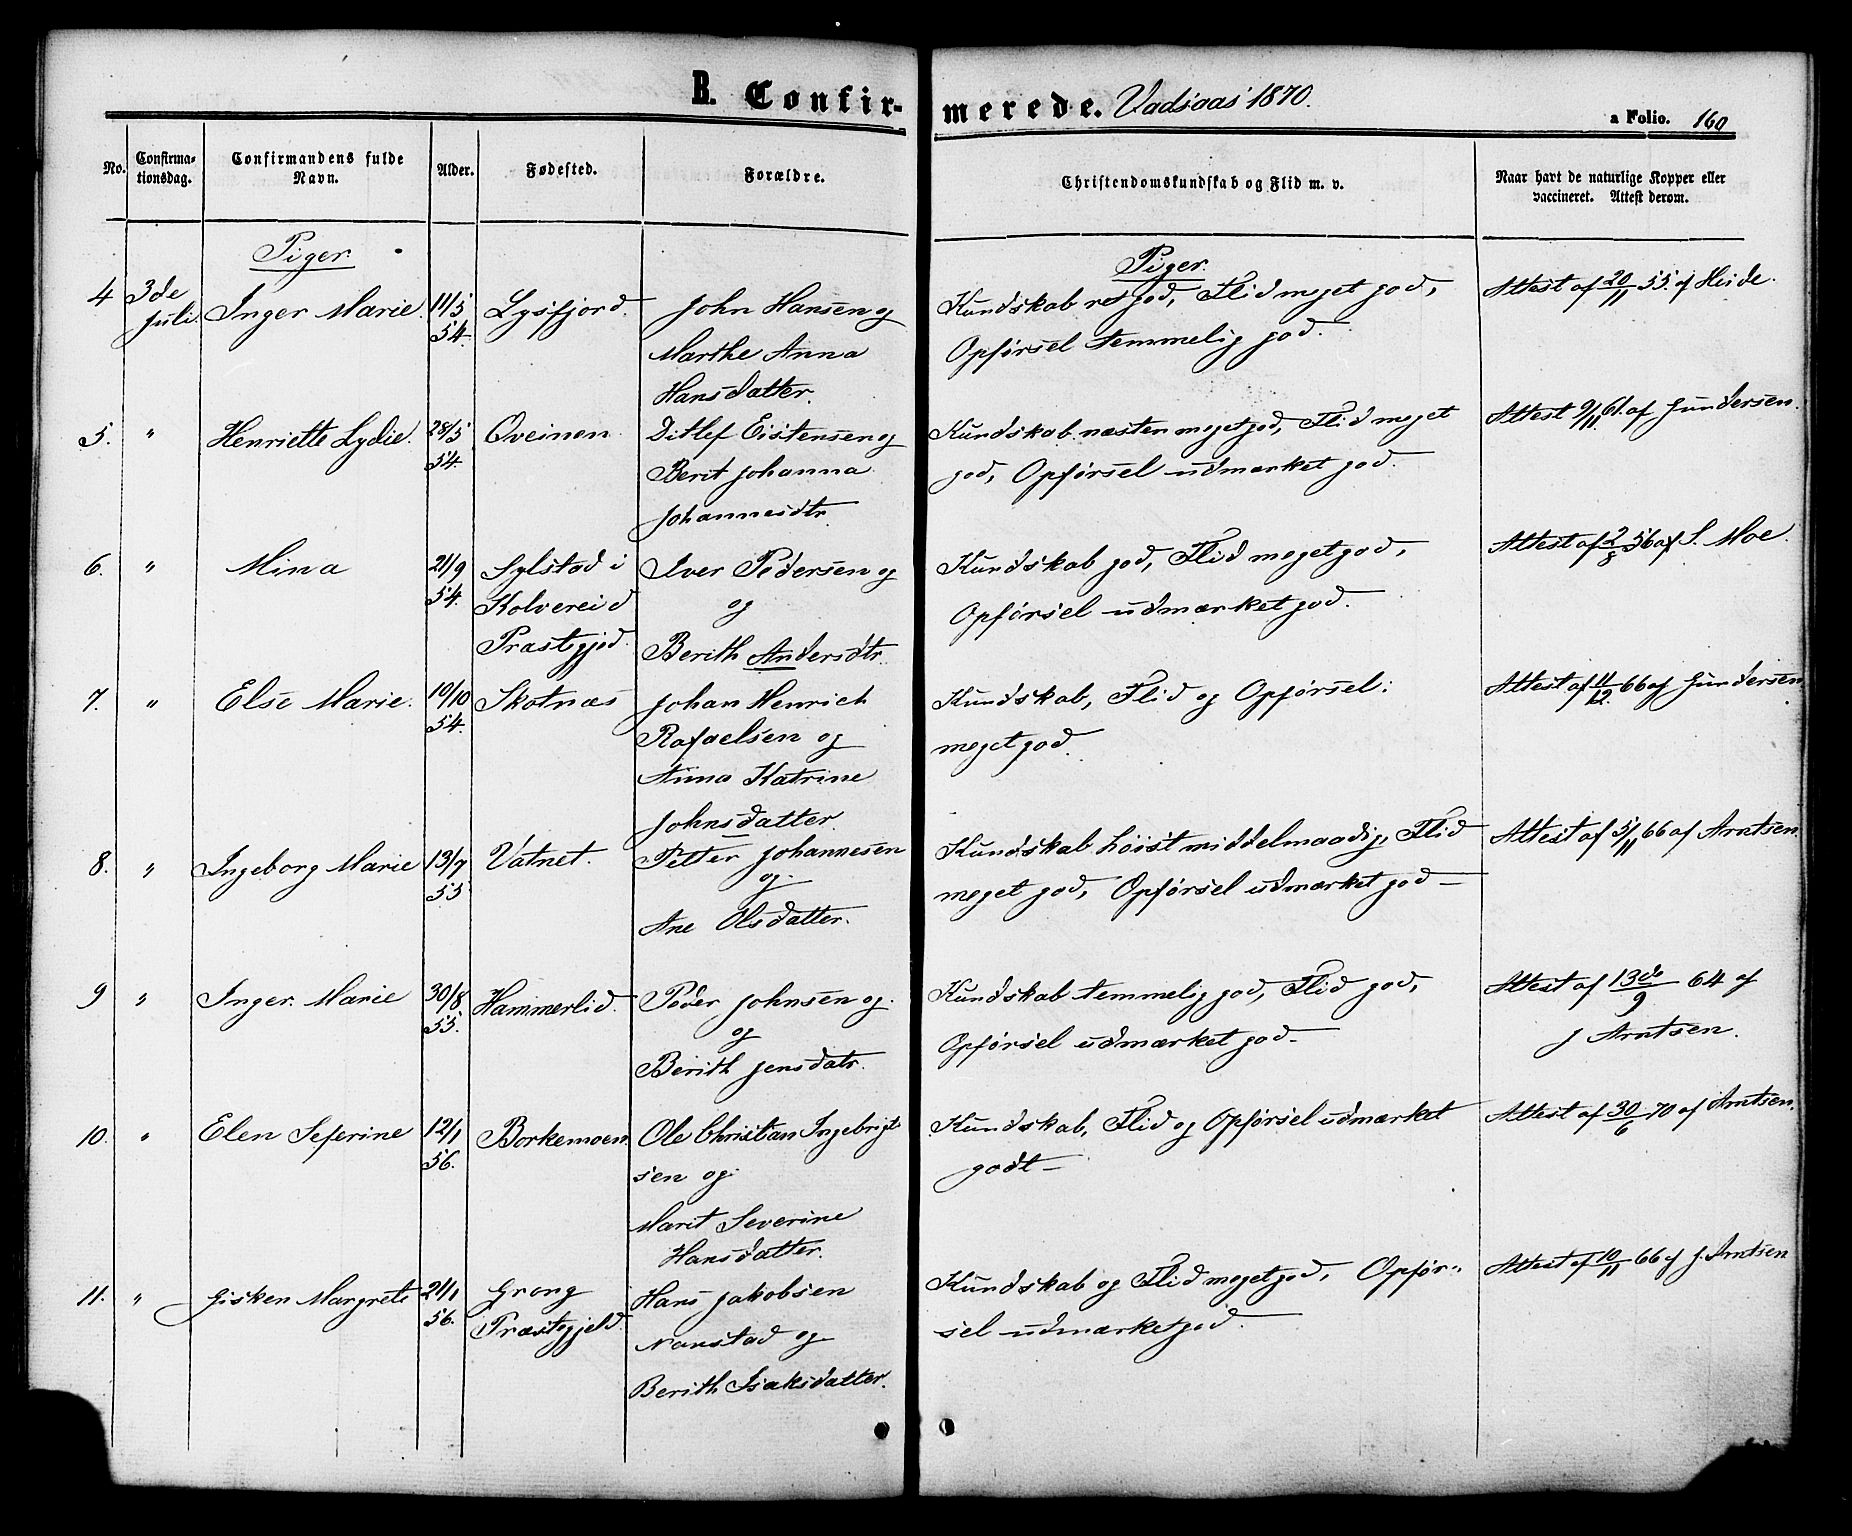 B. Confir-
merede. Vadsaas 1870.
a Folio. 160
No.
Confirma-
tionsdag.
Confirmandens fulde
Navn.
Alder.
Fødested.
Forældre.
Christendomskundskab og Flid m. v.
Naar havt de naturlige Kopper eller
vaccineret. Attest derom.
Piger.
Piger.
4 3de
Juli
Inger Marie
11/5
54.
Lysfjord.
John Hansen og
Marthe Anna
Hansdatter.
Kundskab ret god, Flid meget god,
Opførsel temmelig god.
Attest af 20/11 55 af Heide.
5. "
Henriette Lydie.
28/5
54.
Qveinen
Ditlef Eistensen og
Berit Johanna
Johannesdtr
Kundskab næsten meget god, Flid meget
god, Opførsel udmærket god.
Attest 9/11 61. af Gundersen.
6. "
Mina
21/9
54.
Sylstad i
Kolvereid
Præstgjed.
Iver Pedersen og
og
Berith Andersdtr.
Kundskab god, Flid meget god,
Opførsel udmærket god.
Attest af 2/8 56 af S. Moe.
7. "
Else Marie.
10/10
54.
Skotnæs
Johan Henrich
Rafaelsen og
Anna Katrine
Johnsdatter.
Kundskab, Flid og Opførsel:
meget god.
Attest af 11/12. 66 af Gundersen
8. "
Ingeborg Marie
13/7
55
Vatnet.
Petter Johannesen
og
Ane Olsdatter.
Kundskab høist middelmaadig, Flid
meget god, Opførsel udmærket god —
Attest af 5/11 66 af Arntsen.
9 "
Inger Marie
30/8
55.
Hammerlid.
Peder Johnsen og
og
Berith Jensdatr.
Kundskab temmelig god, Flid god,
Opførsel udmærket god —
Attest af 13de/9 64 af
J Arntsen.
10. "
Elen Seferine
12/1
56.
Borkemoen
Ole Christian Ingebrigt
sen og
Marit Severine
Hansdatter.
Kundskab, Flid og Opførsel udmærket
godt —
Attest af 30/6 70 af Arntsen.
11. "
Gisken Margrete
24/1
56.
Grong
Præstegjeld.
Hans Jakobsen
Nanstad og
Berith Isaksdatter.
Kundskab og Flid meget god, Opfør-
sel udmærket god.
Attest af 10/11 66 af J. Arntsen